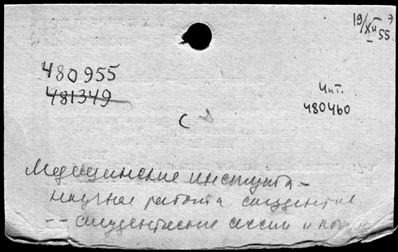 19/XII 55
480955
481349
Чит.
480460
С
Медицинские институты -
научная работа студентов
-- студенческие сессии и